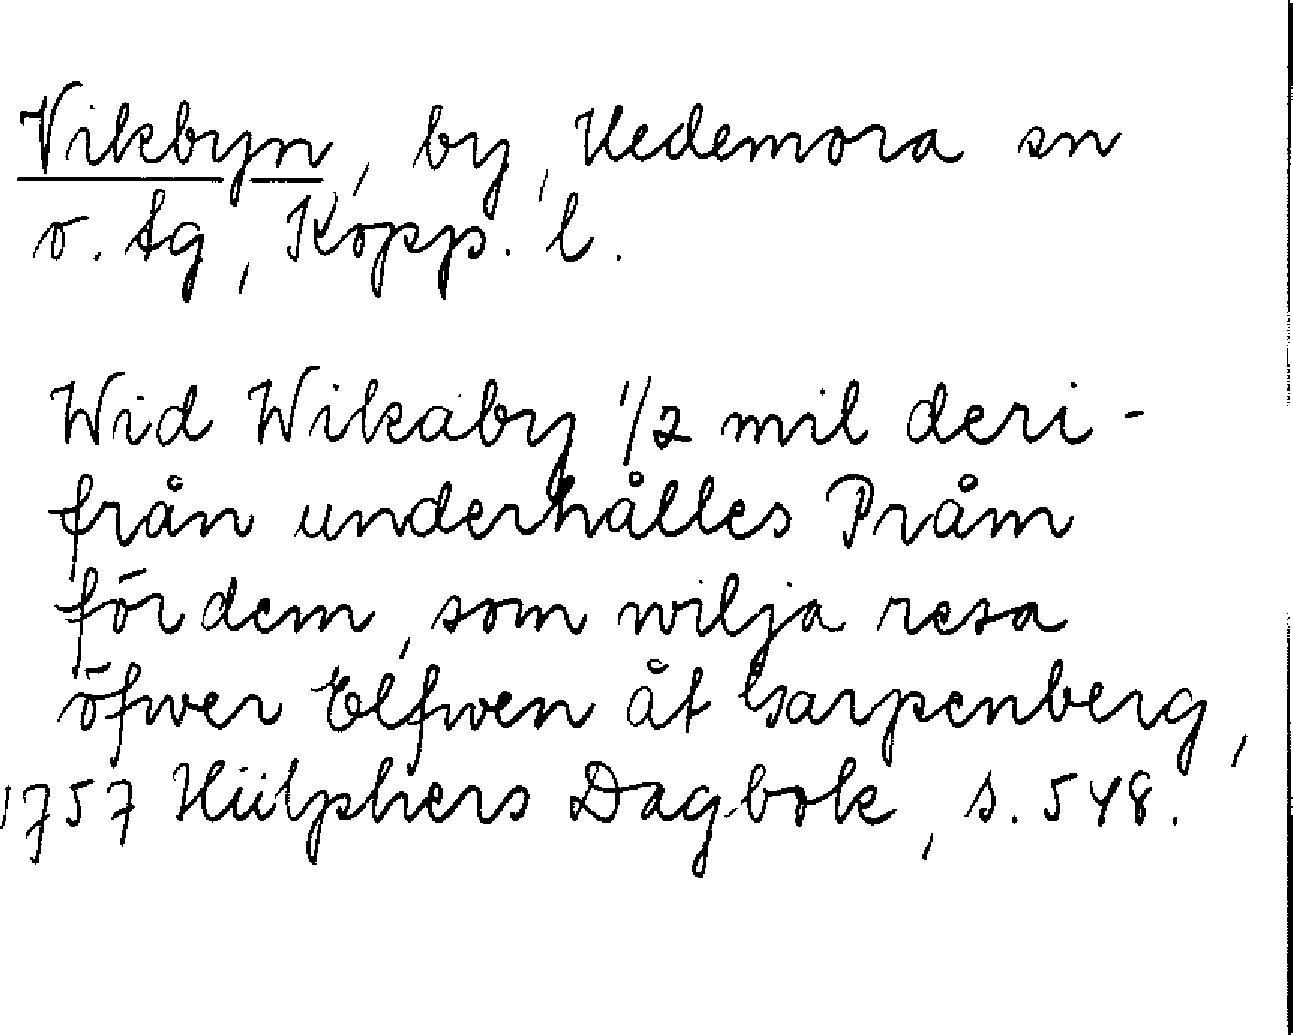 Vikbyn, by, Hedemora sn
o. tg, Kopp. l.
Wid Wikaby 1/2 mil deri-
från underhålles Pråm
för dem, som wilja resa
öfwer Elfwen åt Garpenberg,
1757 Hülphers Dagbok, s. 548.